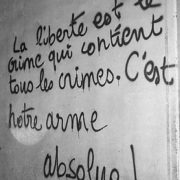 La liberté est le
crime qui contient
tous les crimes. C'est
notre arme
absolue!